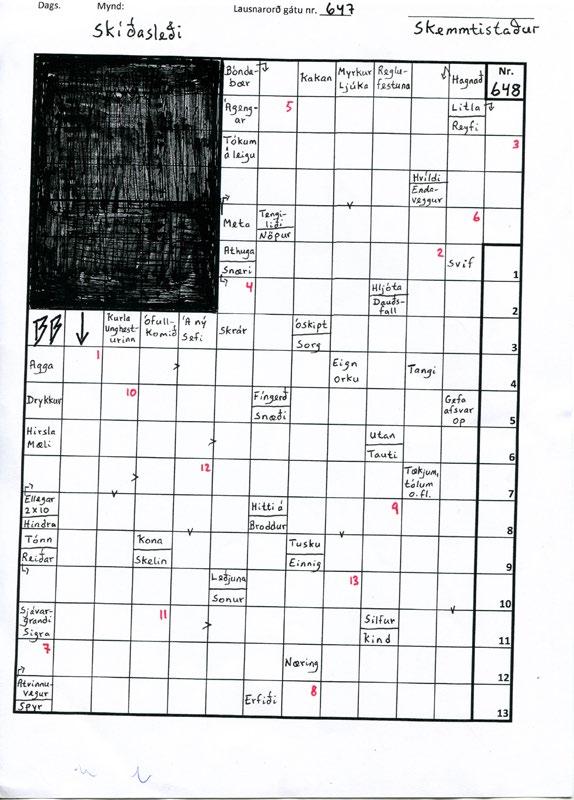 Dags. Mynd: Lausnarorð gátu nr. 647
Skíðasleði Skemmtistaður
Bónda-
bær
Kakan
Myrkur
Ljúka
Reglu-
festuna
Hagnað
Nr.
648
Ágeng-
ar
5
Litla
Reyfi
Tókum
á leigu
3
Hvíldi
Enda-
veggur
Meta
Tengi-
liði
Nöpur
6
Athuga
Snæri
2
Svif
1
4
Hljóta
Dauðs-
fall
2
BB
Kurla
Unghest-
urinn
Ófull-
komið
Á ný
Sefi
Skrár
Óskipt
Sorg
3
Agga
1
Eign
Orku
Tangi
4
Drykkur
10
Fíngerð
Snæði
Gefa
afsvar
Op
5
Hirsla
Mæli
Utan
Tauti
6
12
Tækjum,
tólum
o.fl.
7
Ellegar
2x10
Hindra
Hitti á
Broddur
9
8
Tónn
Reiðar
Kona
Skelin
Tusku
Einnig
9
Leðjuna
Sonur
13
10
Sjávar-
grandi
Sigra
11
Silfur
Kind
11
7
Næring
12
Atvinnu-
vegur
Spyr
Erfiði
8
13